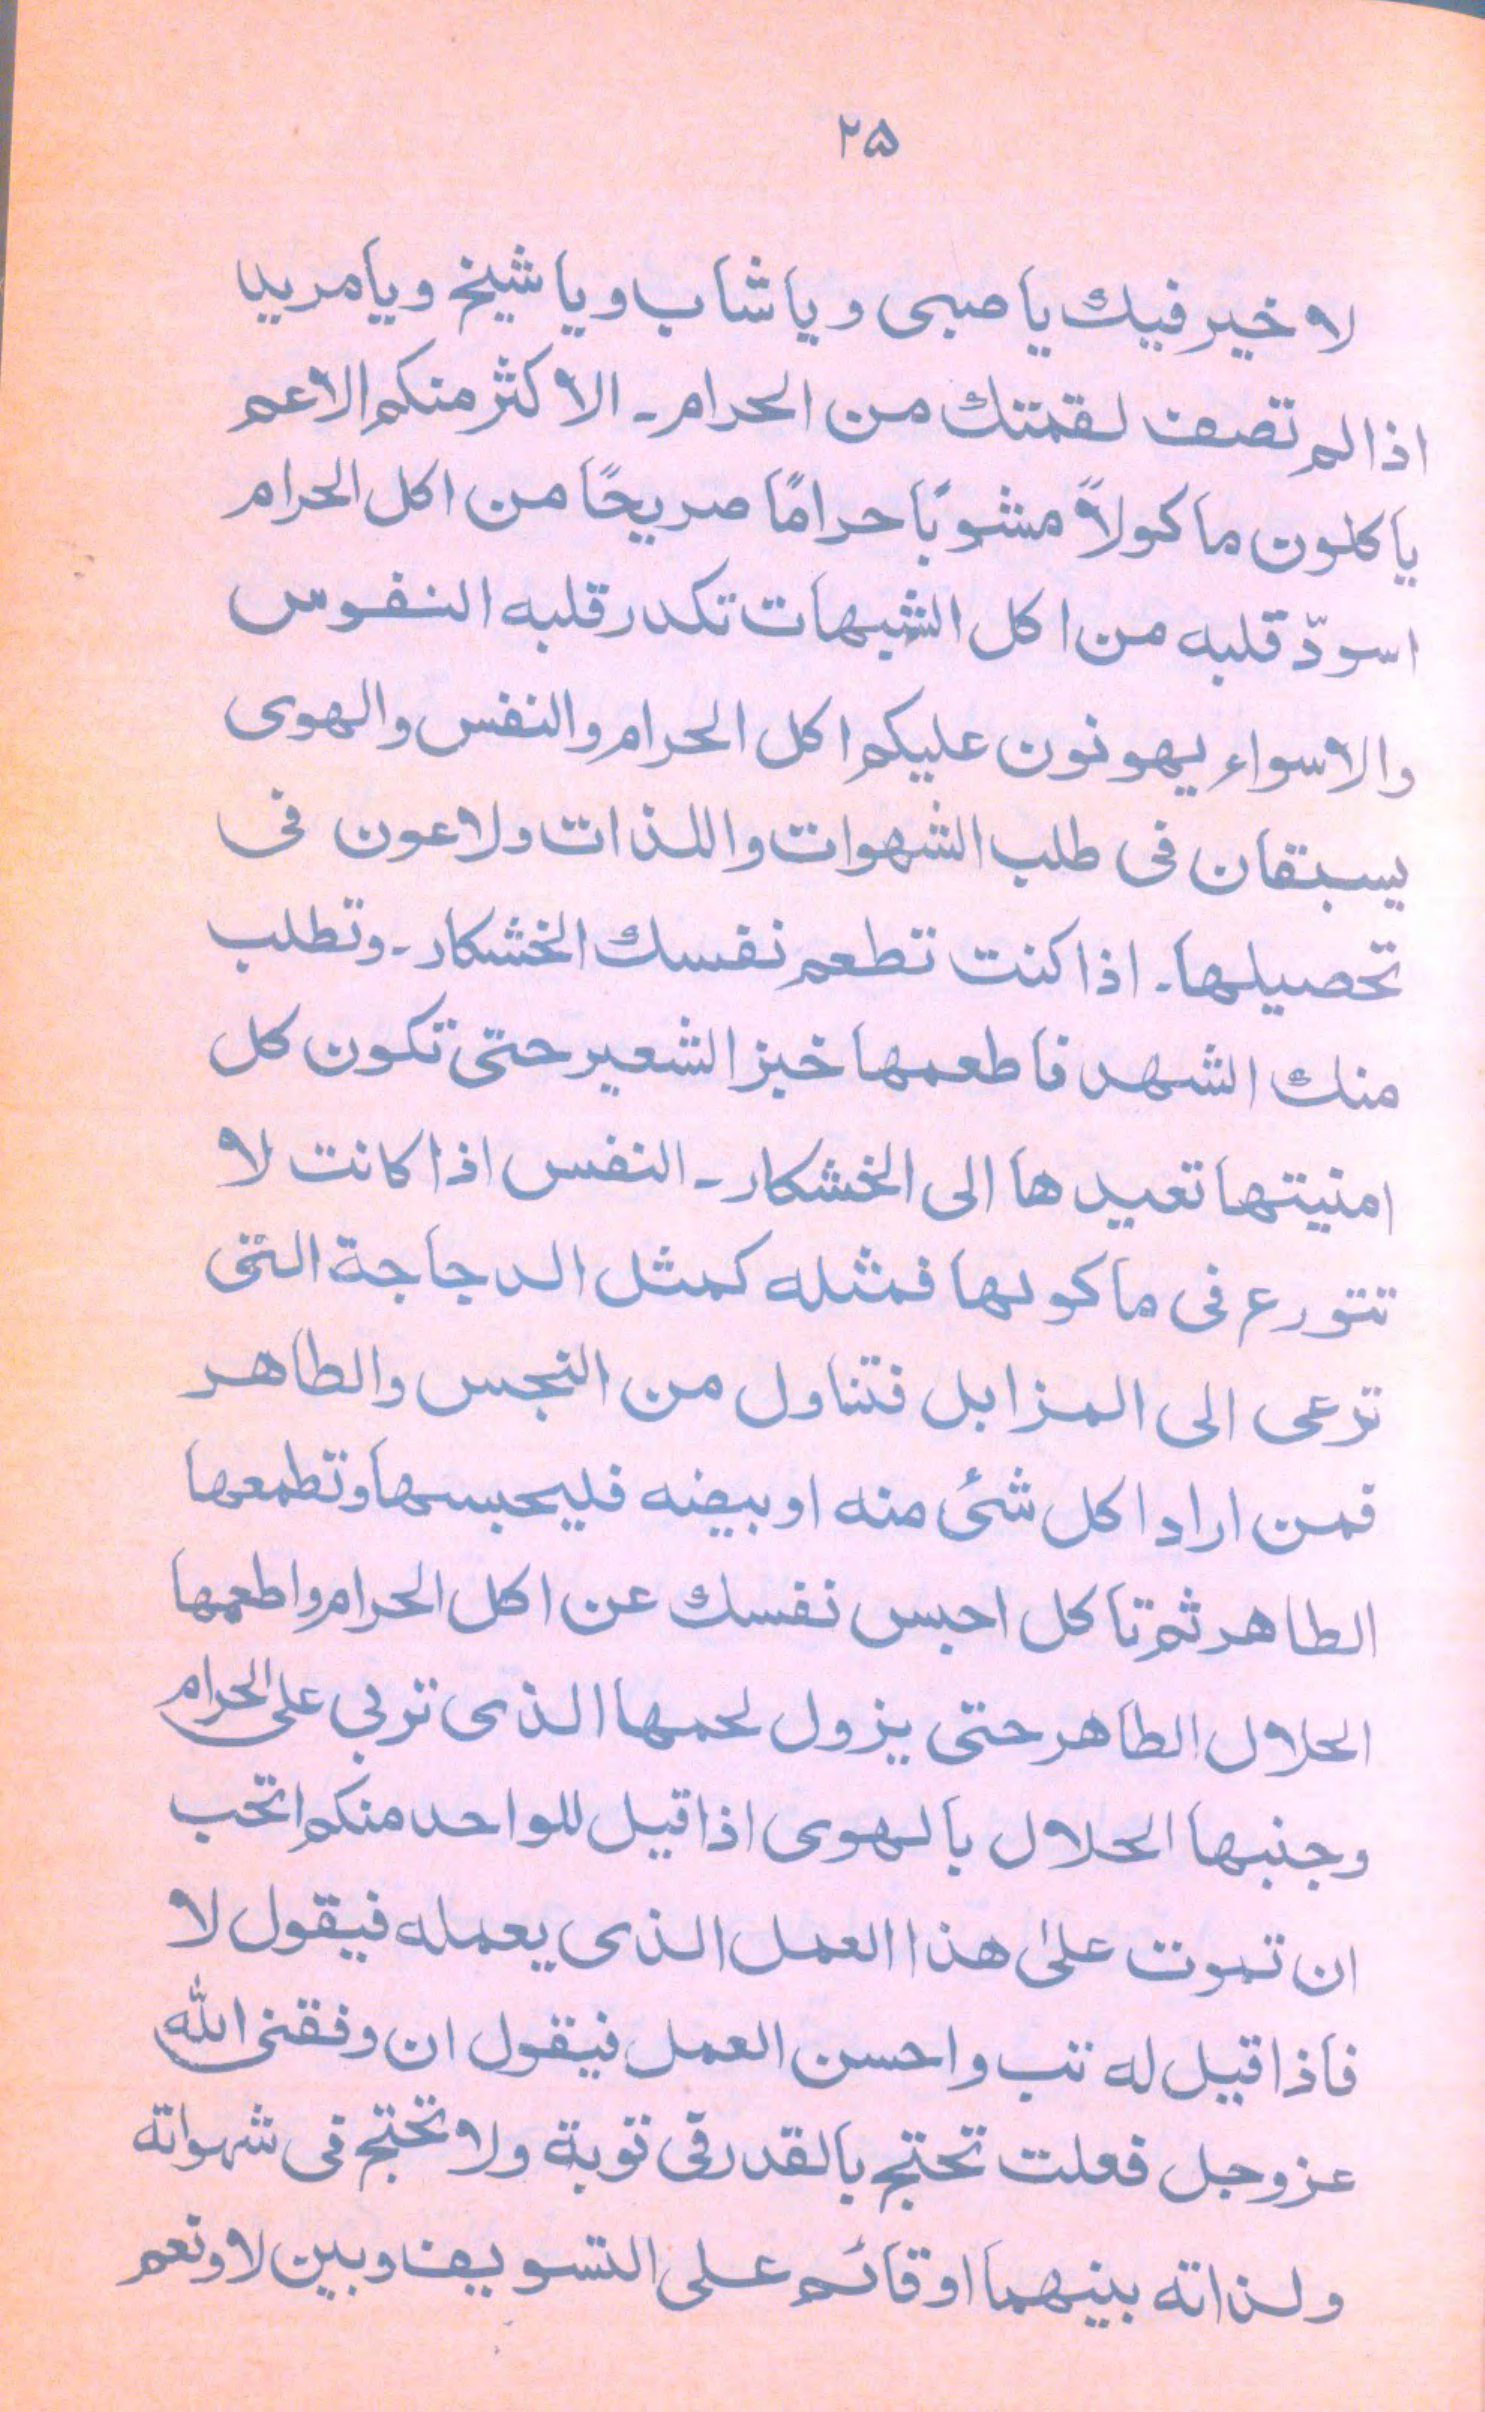 ۲۵
لا خیر فیك یا صبی و یا شاب و یا شیخ و یا مرید
اذا لم تصف لقمتك من الحرام ـ الاکثر منکم الاعم
یاکلون ماکولاً مشوبًا حرامًا صریحًا من اکل الحرام
اسودّ قلبه من اکل الشبهات تکدر قلبه النفوس
والاسواء یهونون علیکم اکل الحرام والنفس والهوی
یسبقان فی طلب الشهوات واللذات ولاعون فی
تحصیلها ۔ اذا کنت تطعم نفسك الخشکار ۔ وتطلب
منك الشهد فاطعمها خبز الشعیر حتی تکون کل
امنیتها تعیدها الی الخشکار ـ النفس اذا کانت لا
تتورع فی ماکولها فمثله کمثل الدجاجة التی
ترعی الی المزابل فتناول من النجس والطاهر
فمن اراد اکل شئ منه او بیضه فلیحبسها وتطمعها
الطاهر ثم تاکل احبس نفسك عن اکل الحرام واطعمها
الحلال الطاهر حتی یزول لحمها الذی تربی علی الحرام
وجنبها الحلال بالهوی اذا قیل للواحد منکم اتحب
ان تموت علیٰ هذا العمل الذی یعمله فیقول لا
فاذا قیل له تب واحسن العمل فیقول ان وفقنی الله
عزوجل فعلت تحتج بالقدر فی توبة ولا تحتج فی شهواته
ولذاته بینهما او قائم علی التسویف وبین لا ونعم